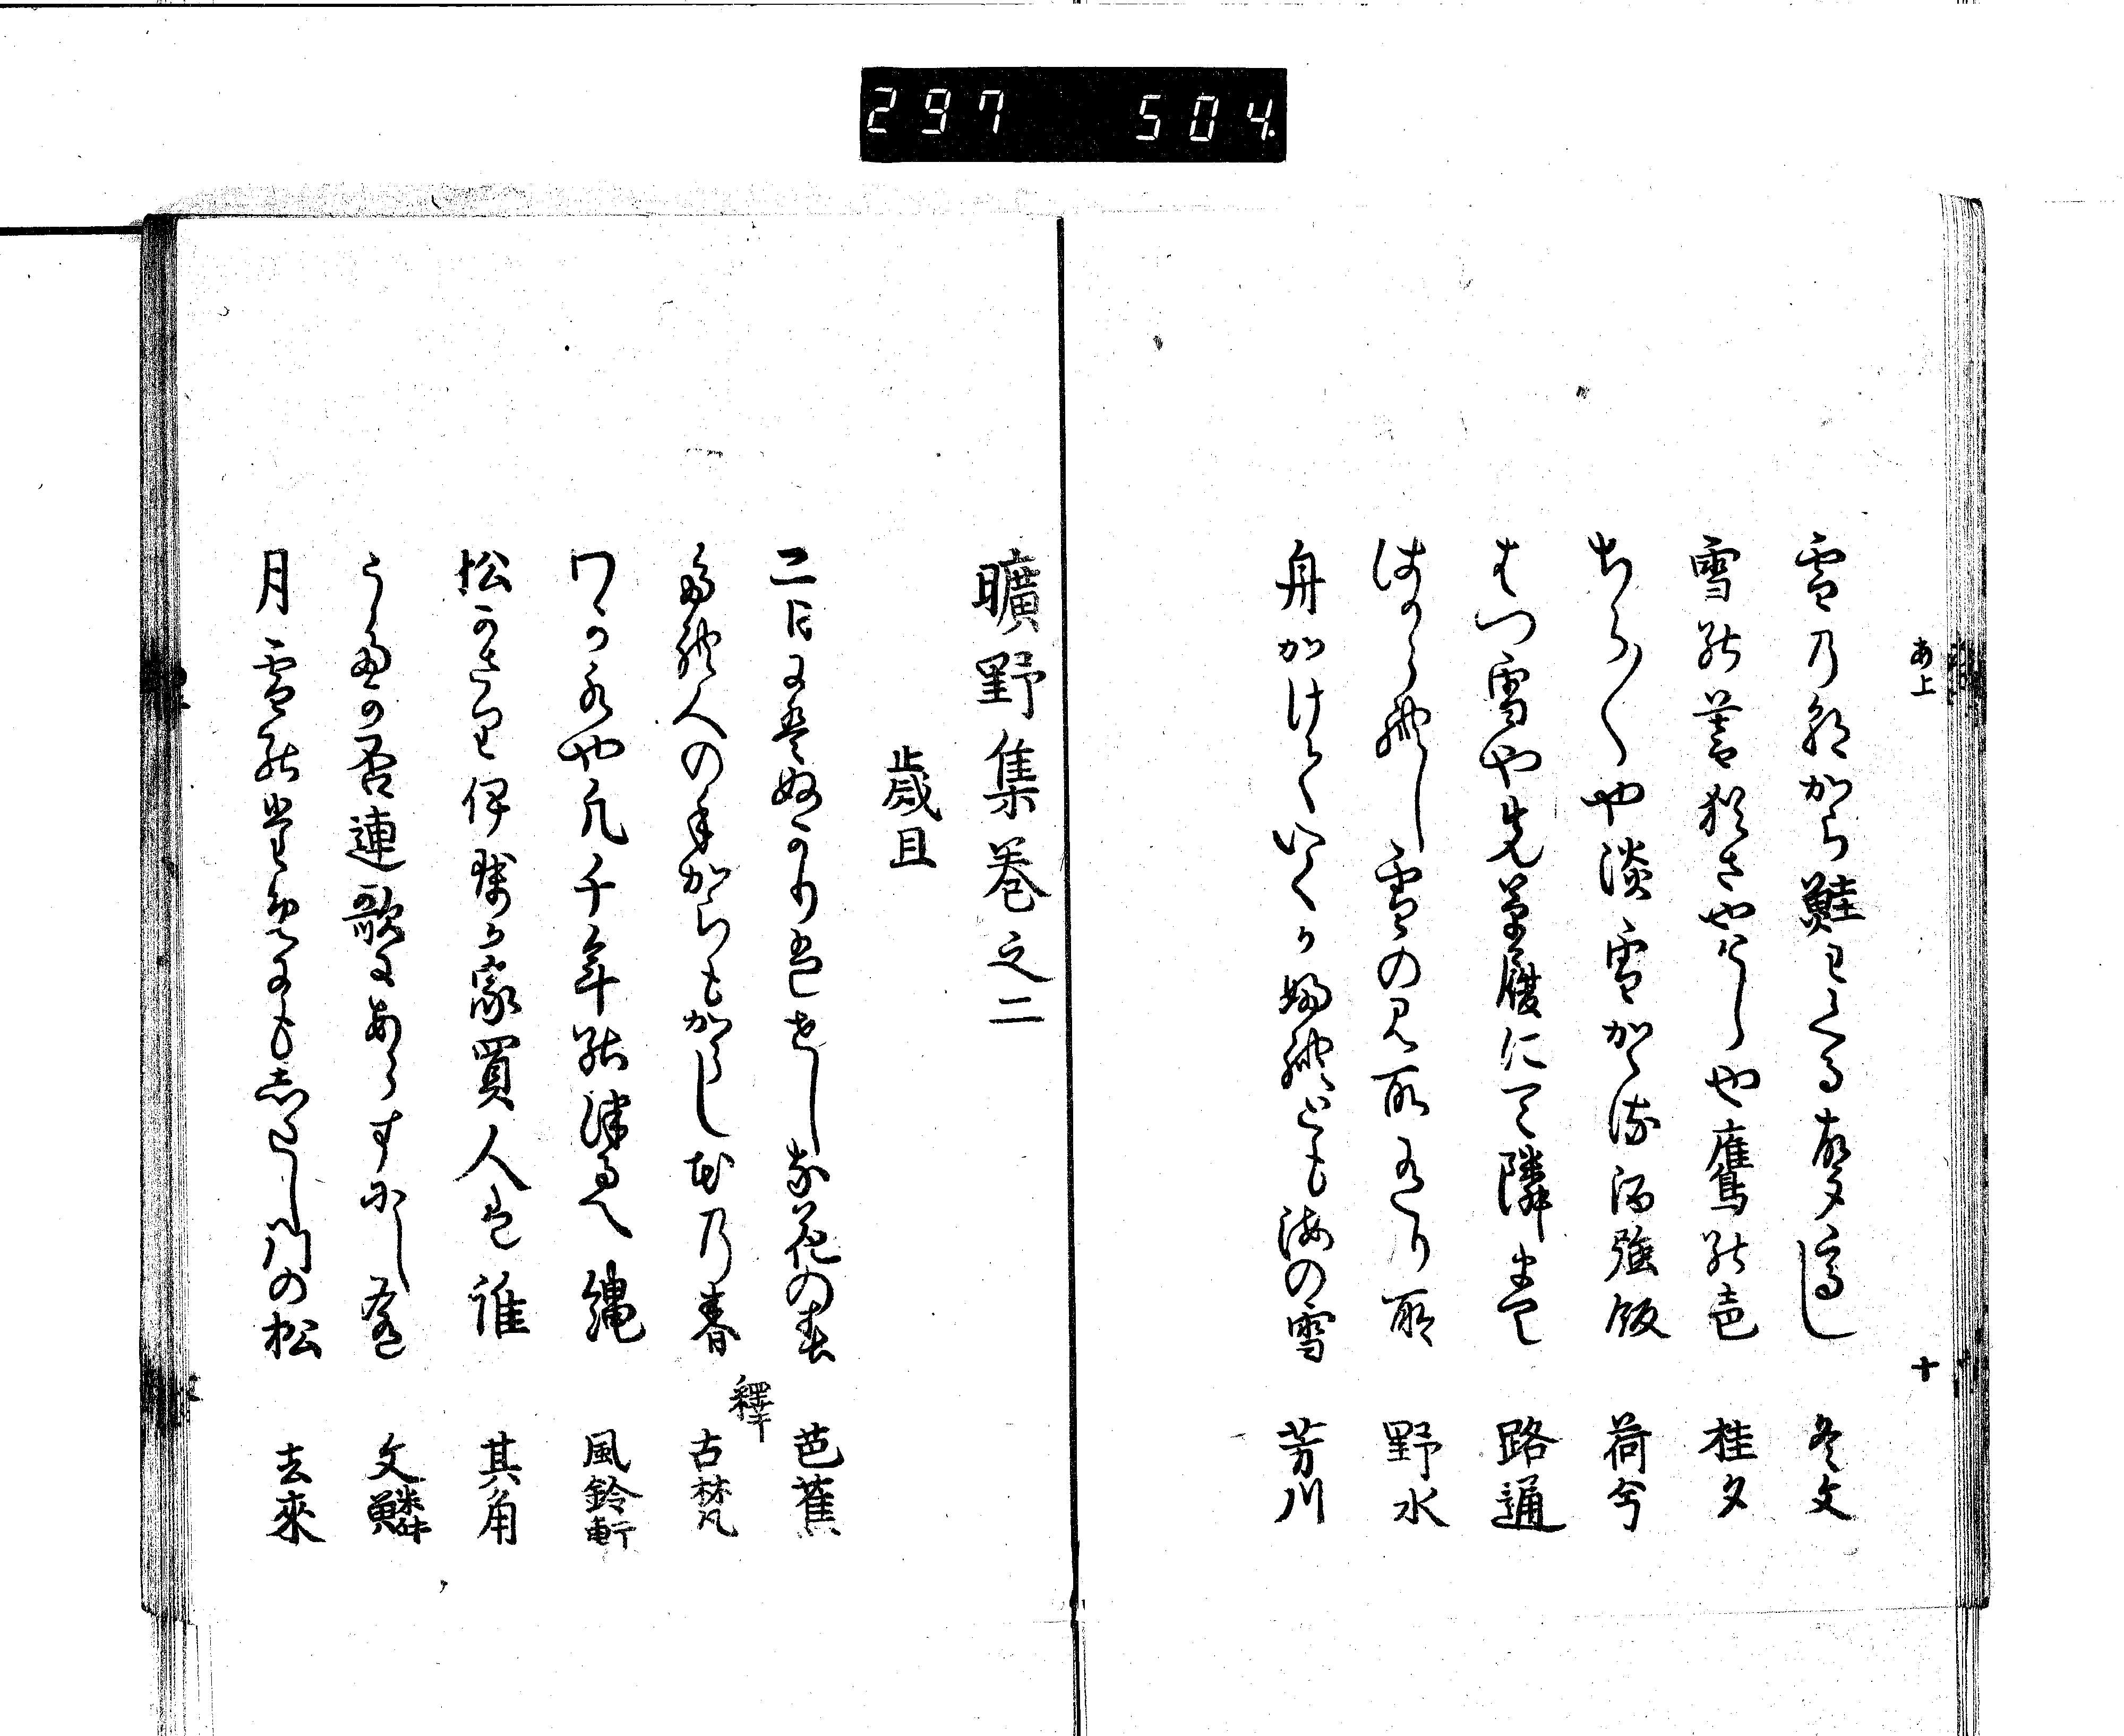 297 504
あ上 十
雪の朝から鮭わくる声高し 冬文
雪の暮猶さやけしや鷹の声 桂夕
ちら〳〵や淡雪かゝる酒強飯 荷兮
はつ雪や先草履にて隣まて 路通
はかられし雪の見所有り所 野水
舟かけていくかふれとも海の雪 芳川
曠野集巻之二
歳旦
二日にもぬかりはせしな花の春 芭蕉
たれ人の手からもからし花の春 釋 古梵
わか水や凡千年のつるへ縄 風鈴軒
松かさり伊勢か家買人は誰 其角
うたか否連歌にあらすにし肴 文鱗
月雪のためにもしたし門の松 去來